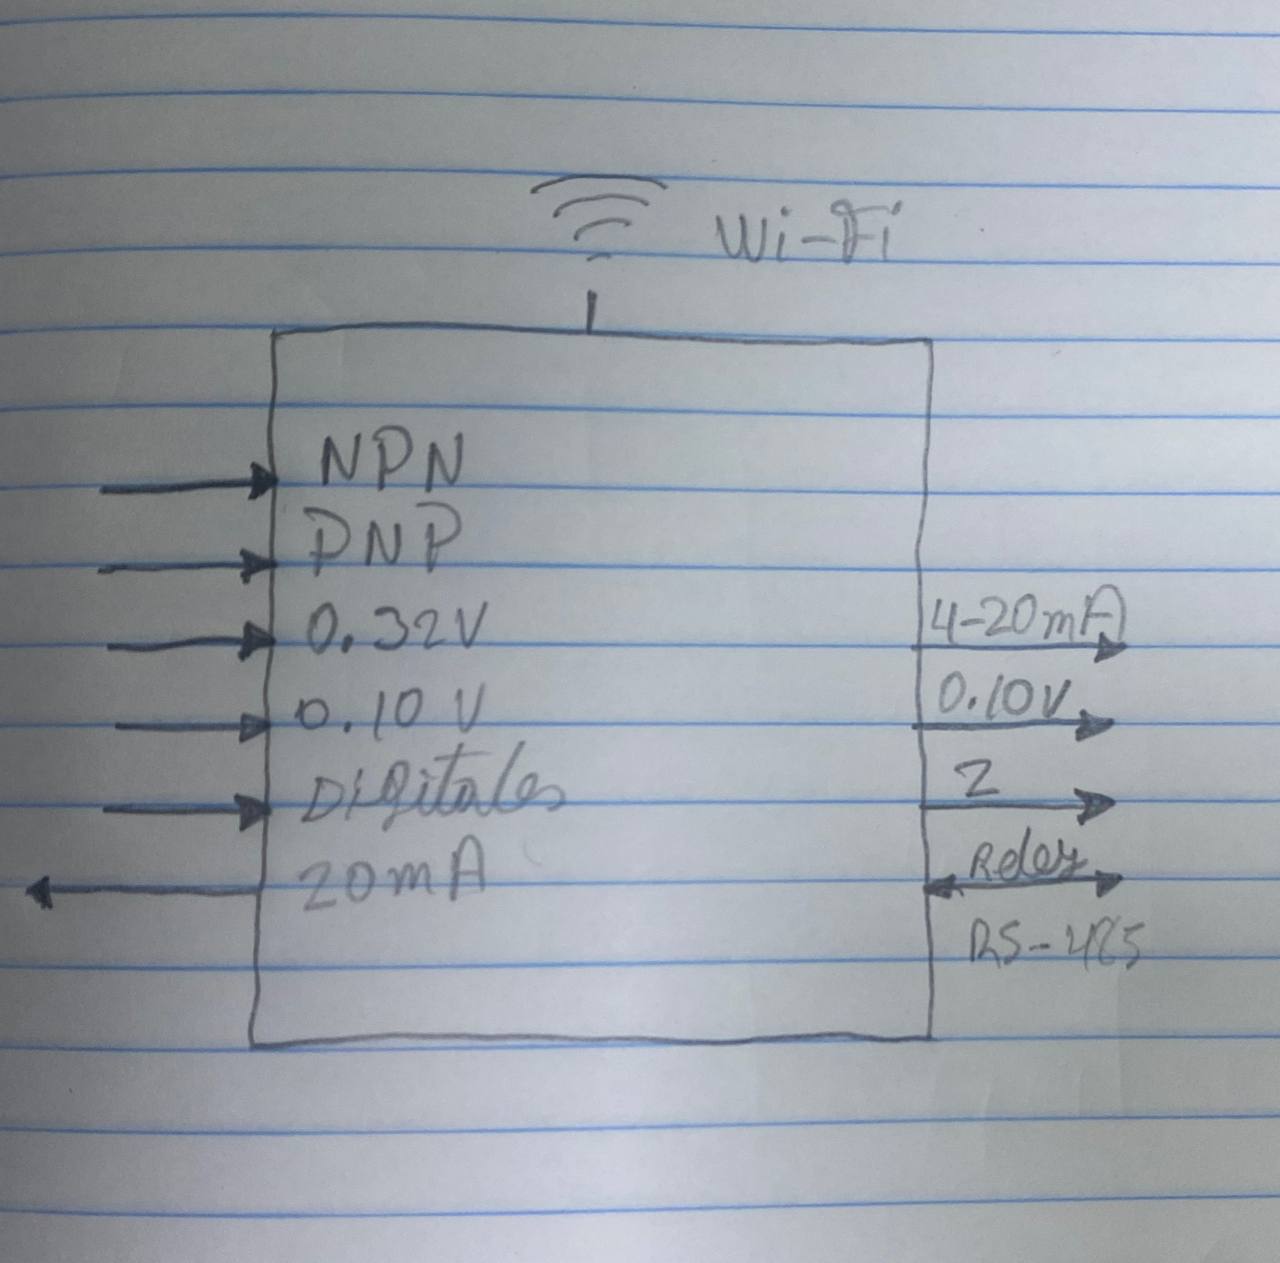 Wi-Fi
NPN
PNP
0.32V
0.10 V
Digitales
20mA
4-20mA
0.10V
2
Reley
RS-485